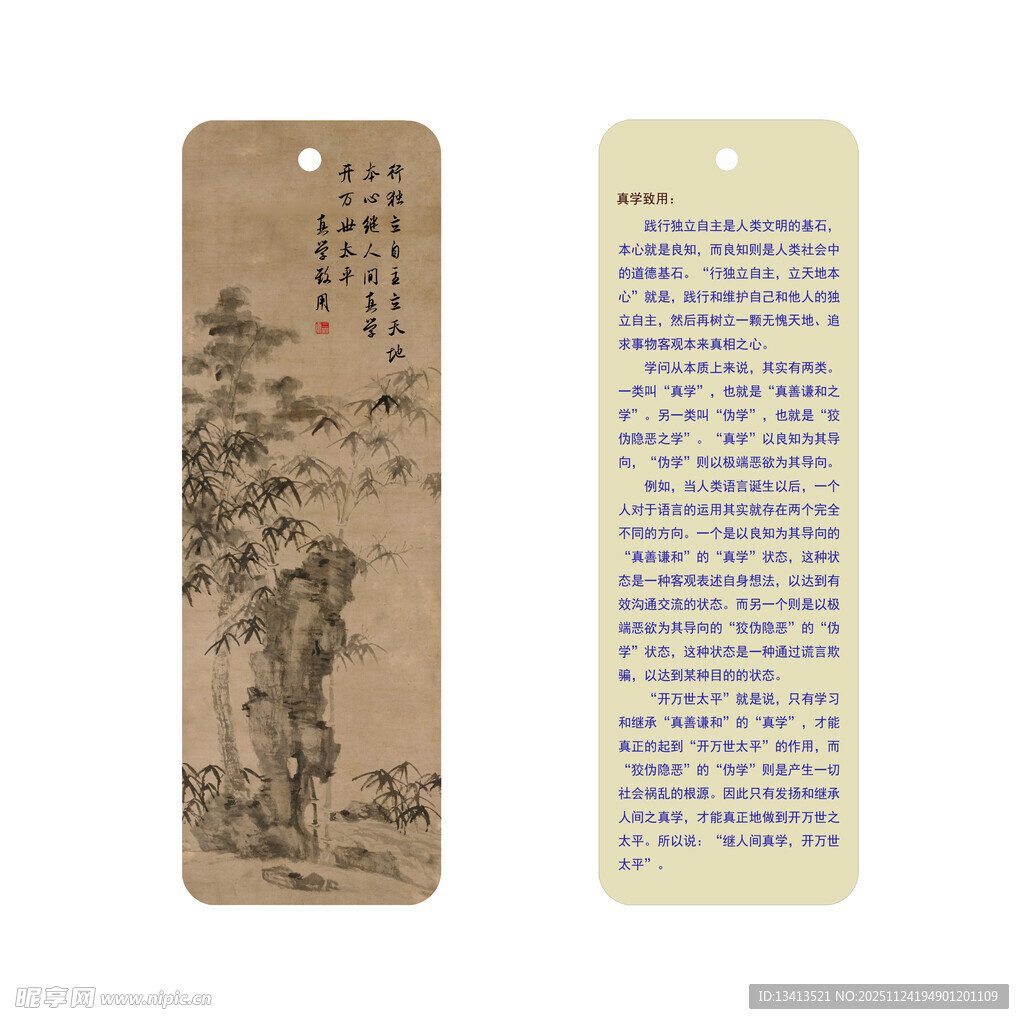 行独立自主立天地
本心继人间真学
开万世太平
真学致用
真学致用：
践行独立自主是人类文明的基石，
本心就是良知，而良知则是人类社会中
的道德基石。“行独立自主，立天地本
心”就是，践行和维护自己和他人的独
立自主，然后再树立一颗无愧天地、追
求事物客观本来真相之心。
学问从本质上来说，其实有两类。
一类叫“真学”，也就是“真善谦和之
学”。另一类叫“伪学”，也就是“狡
伪隐恶之学”。“真学”以良知为其导
向，“伪学”则以极端恶欲为其导向。
例如，当人类语言诞生以后，一个
人对于语言的运用其实就存在两个完全
不同的方向。一个是以良知为其导向的
“真善谦和”的“真学”状态，这种状
态是一种客观表述自身想法，以达到有
效沟通交流的状态。而另一个则是以极
端恶欲为其导向的“狡伪隐恶”的“伪
学”状态，这种状态是一种通过谎言欺
骗，以达到某种目的的状态。
“开万世太平”就是说，只有学习
和继承“真善谦和”的“真学”，才能
真正的起到“开万世太平”的作用，而
“狡伪隐恶”的“伪学”则是产生一切
社会祸乱的根源。因此只有发扬和继承
人间之真学，才能真正地做到开万世之
太平。所以说：“继人间真学，开万世
太平”。
昵享网 www.nipic.cn
ID:13413521 NO:20251124194901201109